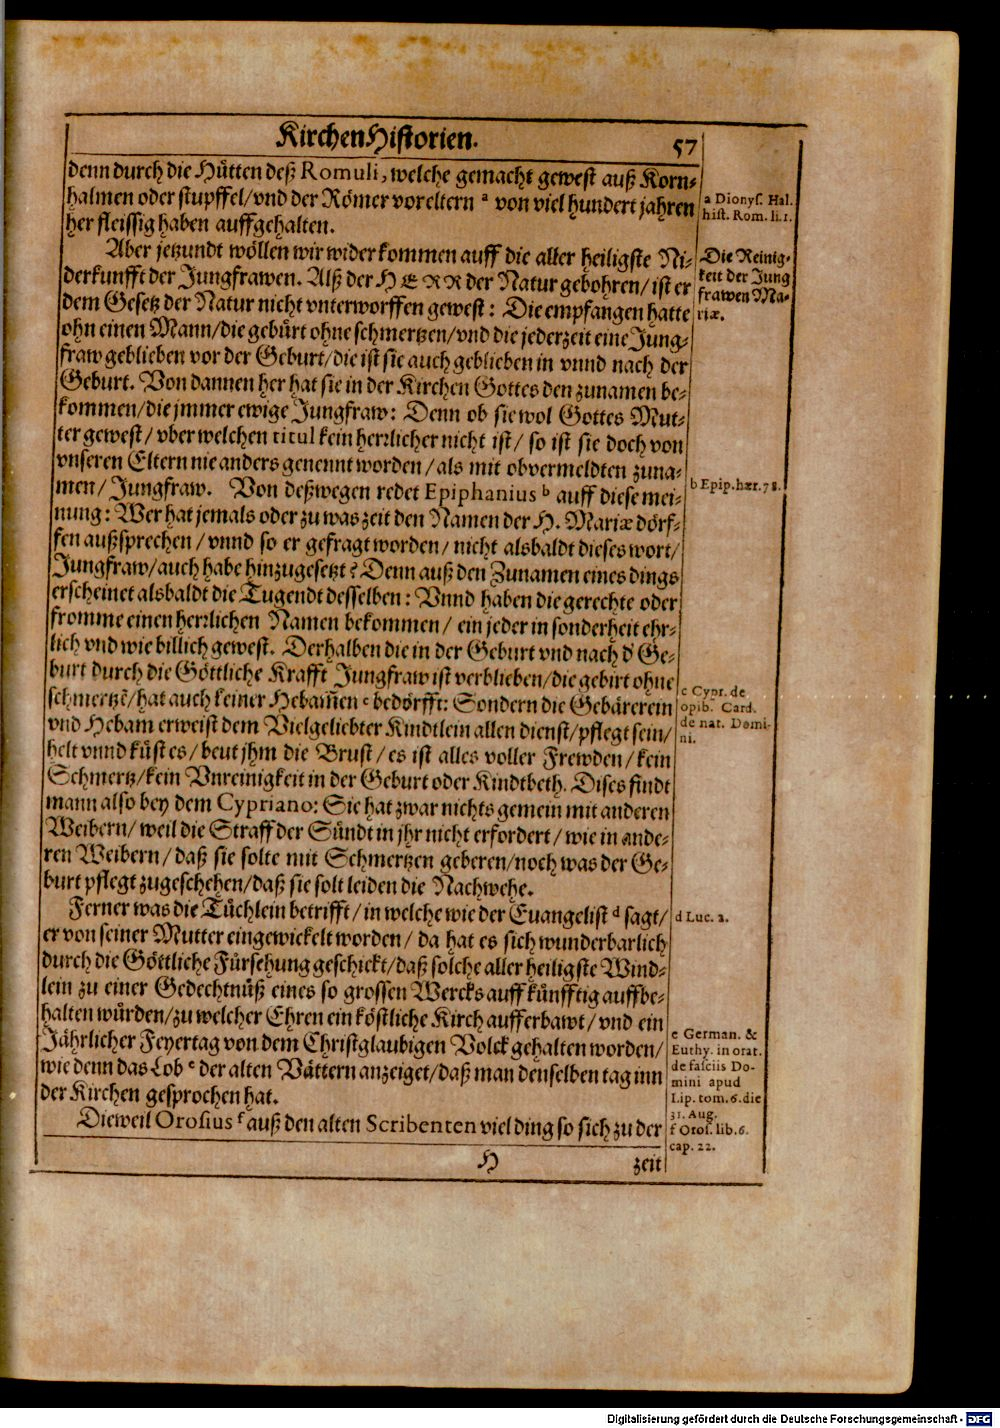 KirchenHistorien. 57
denn durch die Hütten deß Romuli, welche gemacht gewest auß Korn-
halmen oder stupffel/vnd der Römer voreltern a von viel hundert jahren
her fleissig haben auffgehalten.
a Dionys. Hal.
hist. Rom. li. 1.
Aber jetzundt wöllen wir wider kommen auff die aller heiligste Ni-
derkunfft der Jungfrawen. Alß der HERR der Natur gebohren/ ist er
dem Gesetz der Natur nicht vnterworffen gewest: Die empfangen hatte
ohn einen Mann/die gebürt ohne schmertzen/vnd die jederzeit eine Jung-
fraw geblieben vor der Geburt/die ist sie auch geblieben in vnnd nach der
Geburt. Von dannen her hat sie in der Kirchen Gottes den zunamen be-
kommen/die jmmer ewige Jungfraw: Denn ob sie wol Gottes Mut-
ter gewest/ vber welchen titul kein herrlicher nicht ist/ so ist sie doch von
vnseren Eltern nie anders genennt worden/als mit obvermeldten zuna-
men/ Jungfraw. Von deßwegen redet Epiphanius b auff diese mei-
nung: Wer hat jemals oder zu was zeit den Namen der H. Mariæ dörf-
fen außsprechen/vnnd so er gefragt worden/ nicht alsbaldt dieses wort/
Jungfraw/auch habe hinzugesetzt? Denn auß den Zunamen eines dings
erscheinet alsbaldt die Tugendt desselben: Vnnd haben die gerechte oder
fromme einen herrlichen Namen bekommen/ ein jeder in sonderheit ehr-
lich vnd wie billich gewest. Derhalben die in der Geburt vnd nach d' Ge-
burt durch die Göttliche Krafft Jungfraw ist verblieben/die gebirt ohne
schmertzẽ/hat auch keiner Hebam̃en c bedörfft: Sondern die Gebärerein
vnd Hebam erweist dem Vielgeliebter Kindtlein allen dienst/pflegt sein/
helt vnnd küst es/ beut jhm die Brust/ es ist alles voller Frewden/kein
Schmertz/kein Vnreinigkeit in der Geburt oder Kindtbeth. Dises findt
mann also bey dem Cypriano: Sie hat zwar nichts gemein mit anderen
Weibern/ weil die Straff der Sündt in jhr nicht erfordert/ wie in ande-
ren Weibern/ daß sie solte mit Schmertzen geberen/noch was der Ge-
burt pflegt zugeschehen/daß sie solt leiden die Nachwehe.
Die Reinig-
keit der Jung
frawen Ma-
riæ.
b Epip. hær. 78.
c Cypr. de
opib. Card.
de nat. Domi-
ni.
Ferner was die Tüchlein betrifft/ in welche wie der Euangelist d sagt/
er von seiner Mutter eingewickelt worden/ da hat es sich wunderbarlich
durch die Göttliche Fürsehung geschickt/daß solche aller heiligste Wind-
lein zu einer Gedechtnüß eines so grossen Wercks auff künfftig auffbe-
halten würden/zu welcher Ehren ein köstliche Kirch aufferbawt/ vnd ein
Jährlicher Feyertag von dem Christglaubigen Volck gehalten worden/
wie denn das Lob e der alten Vättern anzeiget/daß man denselben tag inn
der Kirchen gesprochen hat.
d Luc. 2.
e German. &
Euthy. in orat.
de fasciis Do-
mini apud
Lip. tom. 6. die
31. Aug.
Dieweil Orosius f auß den alten Scribenten viel ding so sich zu der
f Oros. lib. 6.
cap. 22.
H zeit
Digitalisierung gefördert durch die Deutsche Forschungsgemeinschaft - DFG